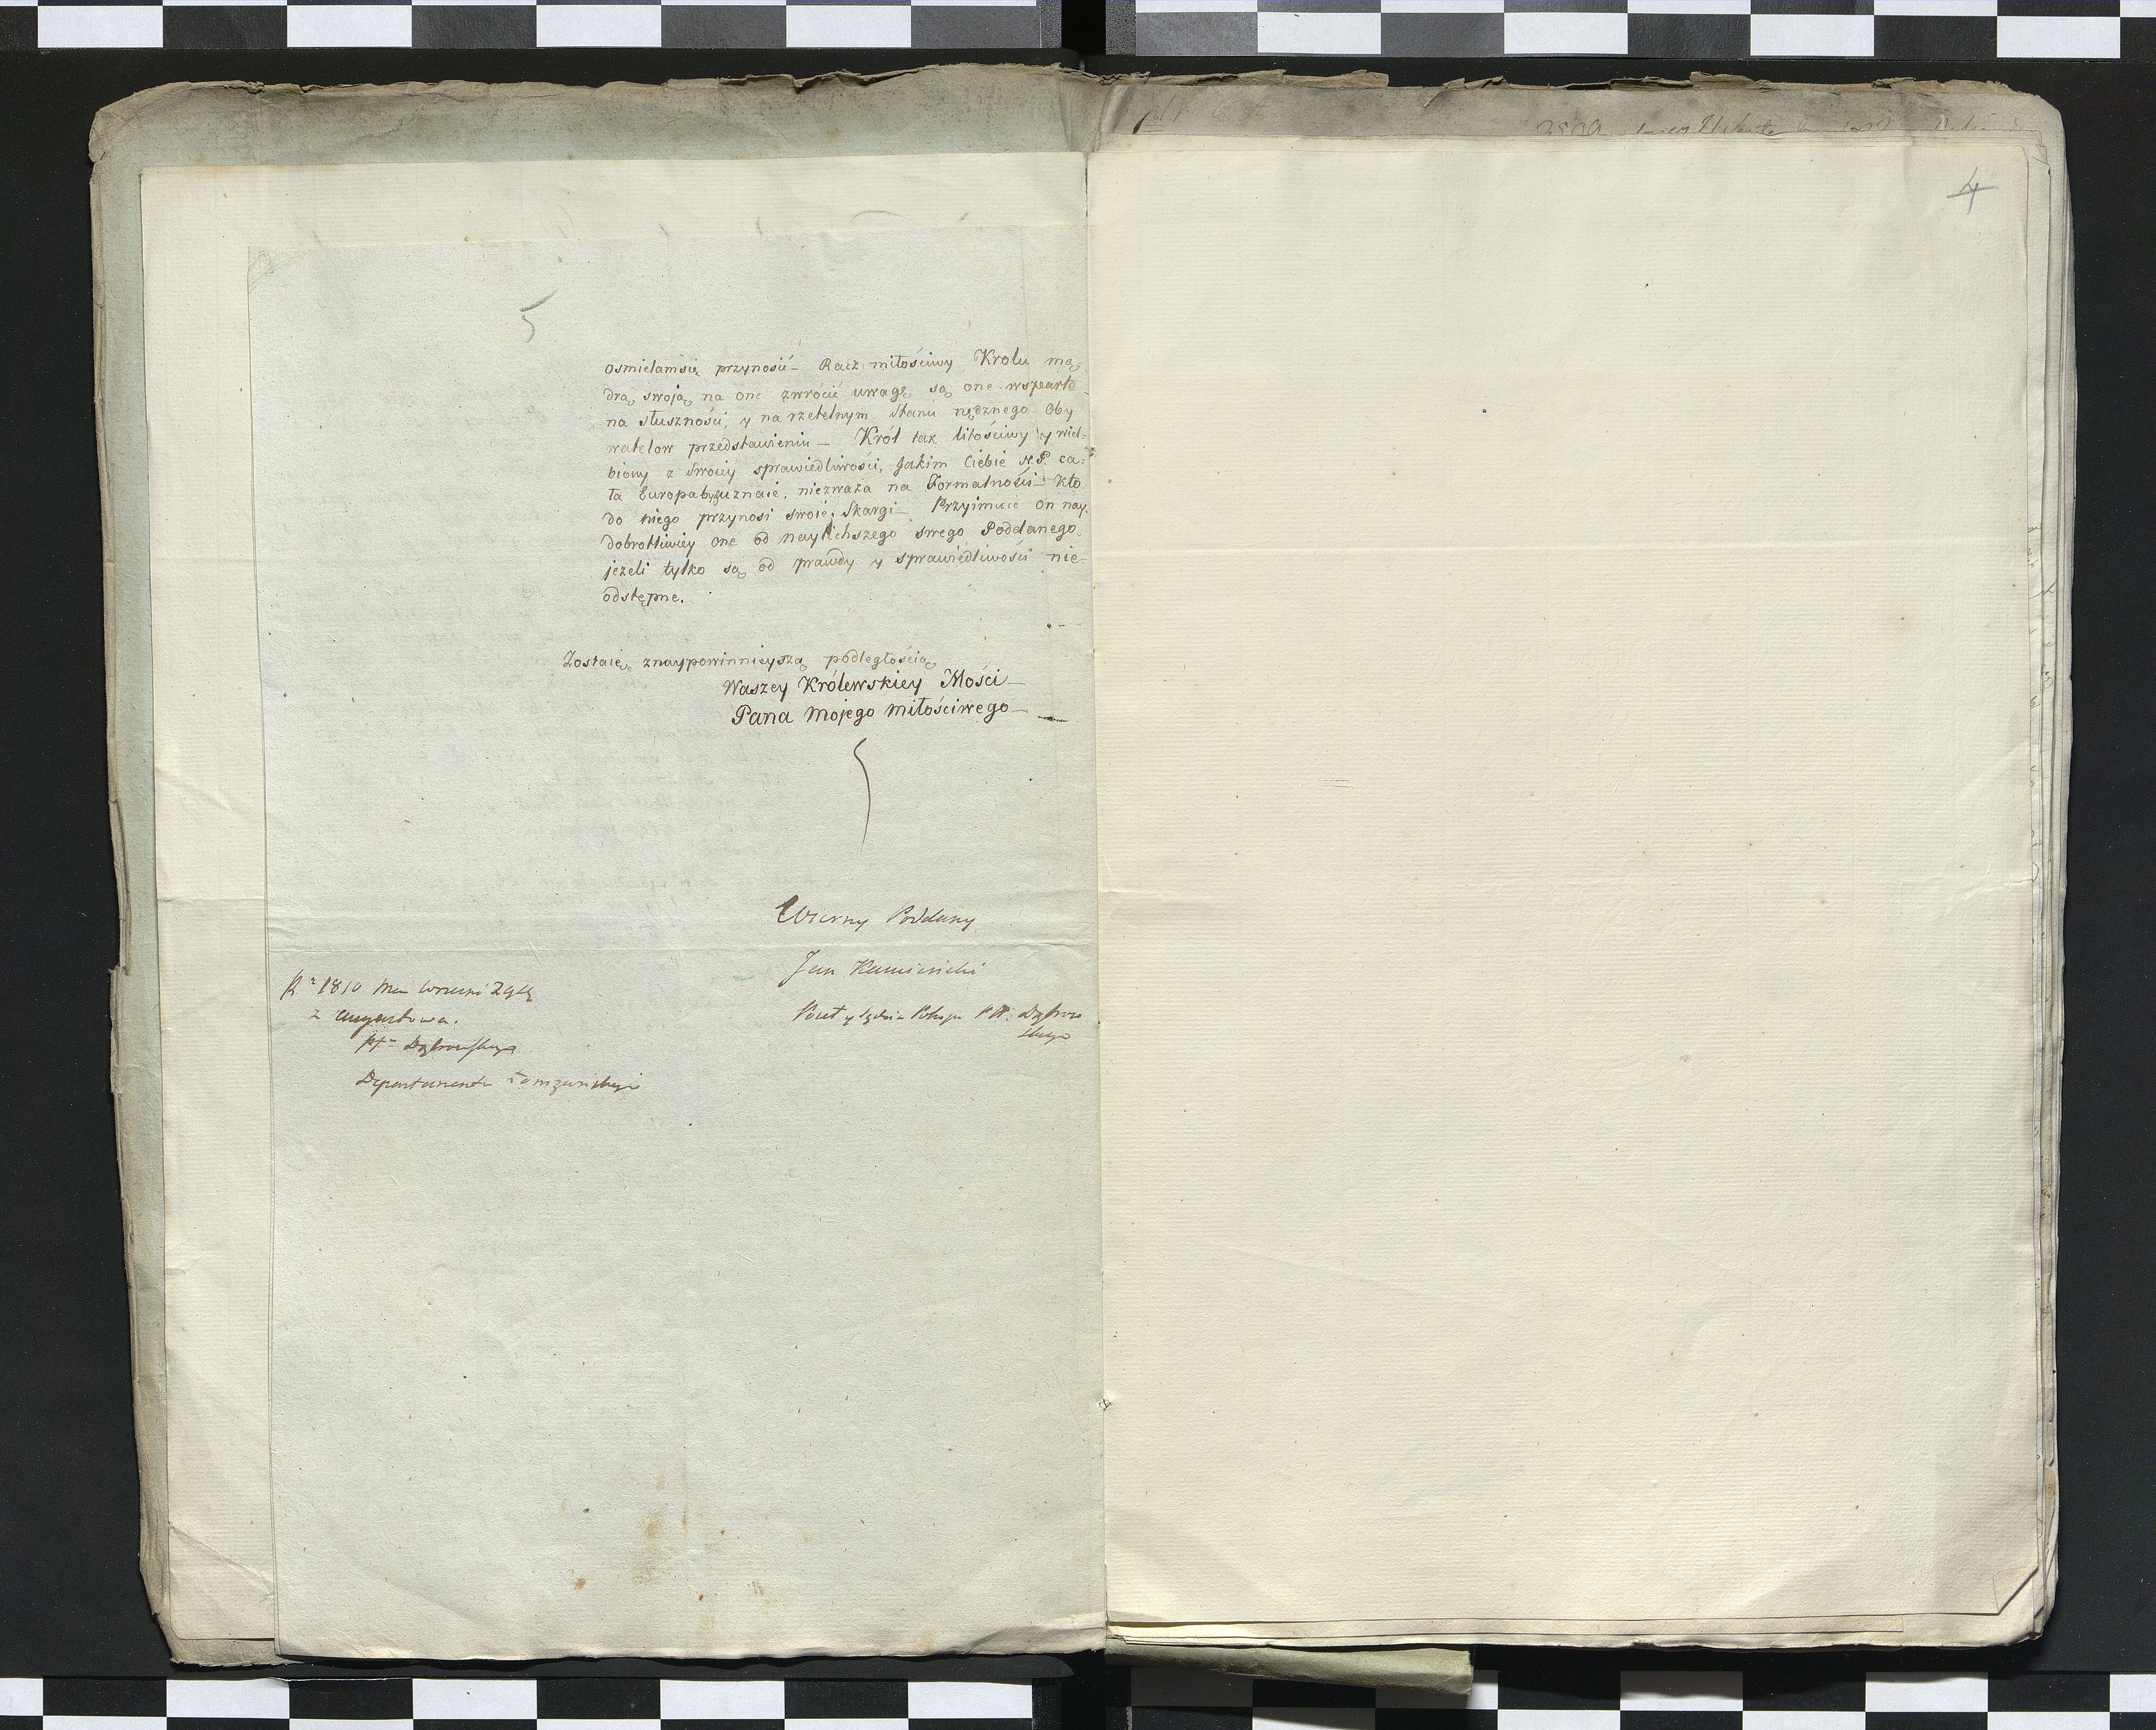 5
osmielamsię przynosić – Racz miłościwy Krolu mą
drą swoją na one zwrócić uwagę są one wsparte
na słuszności, y na rzetelnym stanu nędznego Oby
watelow przedstawieniu – Król tak litościwy y wiel-
biony z Swoiey sprawiedliwości, Jakim Ciebie N. P. ca-
ła Europa uznaie, niezważa na Formalności – Kto
do niego przynosi swoie Skargi – Przyimuie on nay-
dobrotliwiey one od naylichszego swego Poddanego
jeżeli tylko są od prawdy y sprawiedliwości nie-
odstępne.
Zostaię znaypowinnieyszą podległością
Waszey Królewskiey Mości –
Pana mojego miłościwego –
Wierny Poddany
Jan Kamieński
Poseł y Sędzia Pokoju Dąbrow
skiego
1810
z Augustowa.
Dąbrowskiego
Departamentu Łomżyńskiego
4